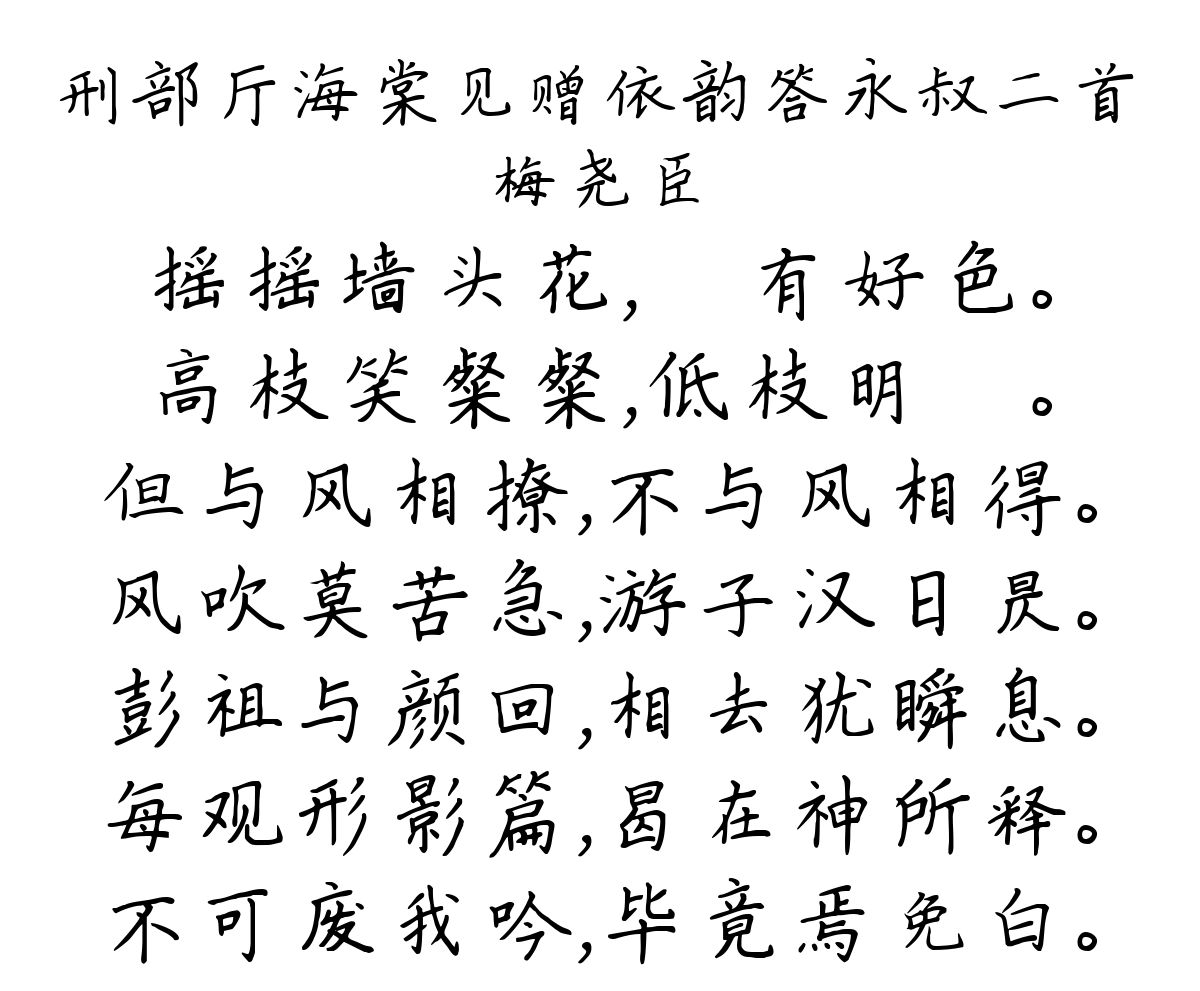 刑部厅海棠见赠依韵答永叔二首
梅尧臣
摇摇墙头花, 有好色。
高枝笑粲粲,低枝明 。
但与风相撩,不与风相得。
风吹莫苦急,游子汉日昃。
彭祖与颜回,相去犹瞬息。
每观形影篇,曷在神所释。
不可废我吟,毕竟焉免白。